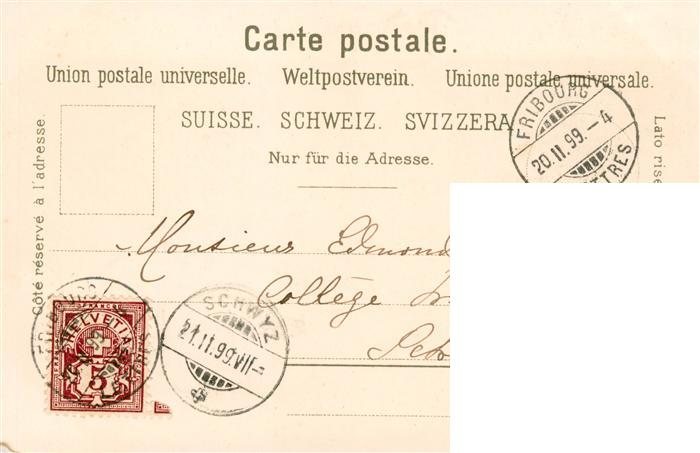 Carte postale.
Union postale universelle. Weltpostverein. Unione postale universale.
SUISSE. SCHWEIZ. SVIZZERA
Nur für die Adresse.
Côté réservé à l'adresse.
Lato rise
FRIBOURG
20.11.99.–4
TTRES
Monsieur Edmond
Collège
SCHWYZ
21.11.99.VII–
FRANCO
HELVETIA
5